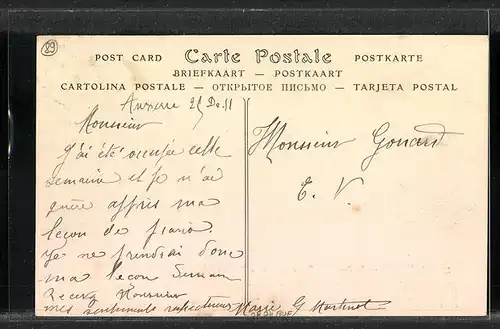 89
POST CARD Carte Postale POSTKARTE
BRIEFKAART — POSTKAART
CARTOLINA POSTALE — ОТКРЫТОЕ ПИСЬМО — TARJETA POSTAL
Auxerre 25 Do. 11
Monsieur
J'ai été occupée cette
semaine et je n'ai
guère appris ma
leçon de piano.
Je ne prendrai donc
ma leçon
Recevez Monsieur
mes sentiments respectueux Marie G Martinot
Monsieur Gouard
E. V.